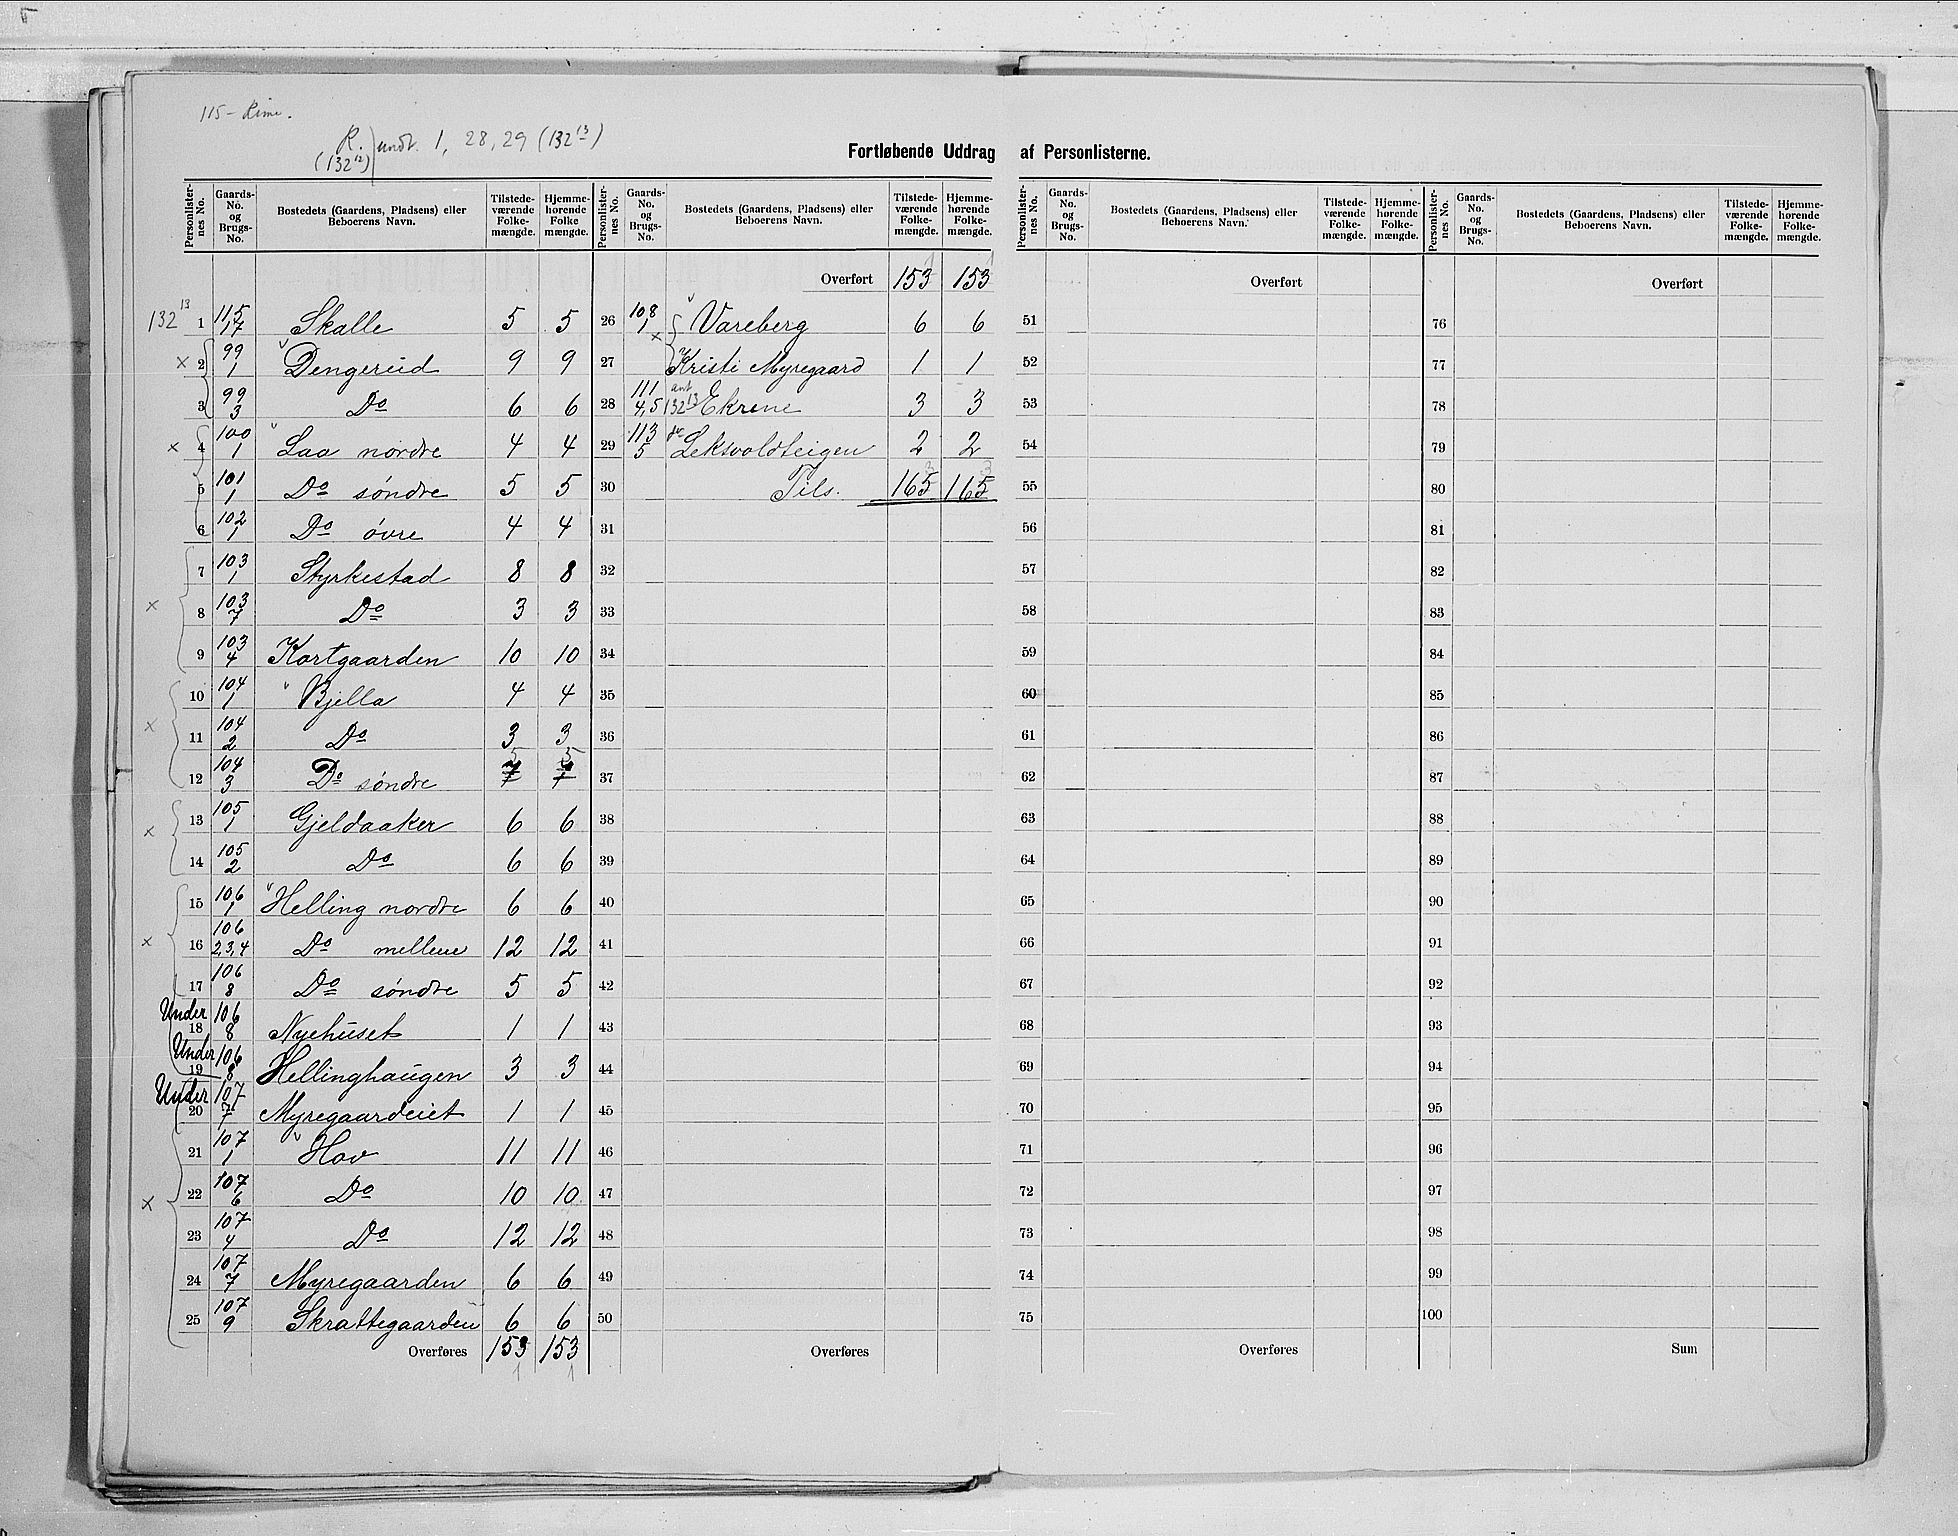 115 - Rime.
R. undt. 1, 28, 29 (132 13)
(132 12)
Fortløbende Uddrag af Personlisterne.
Personlister-nes No. Gaards-No. og Brugs-No. Bostedets (Gaardens, Pladsens) eller Beboerens Navn. Tilstede-værende Folke-mængde. Hjemme-hørende Folke mængde.
Personlister-nes No. Gaards-No. og Brugs-No. Bostedets (Gaardens, Pladsens) eller Beboerens Navn. Tilstede-værende Folke-mængde. Hjemme-hørende Folke-mængde.
Personlister-nes No. Gaards-No. og Brugs-No. Bostedets (Gaardens, Pladsens) eller Beboerens Navn. Tilstede-værende Folke-mængde. Hjemme-hørende Folke-mængde.
Personlister-nes No. Gaards-No. og Brugs-No. Bostedets (Gaardens, Pladsens) eller Beboerens Navn. Tilstede-værende Folke-mængde. Hjemme-hørende Folke-mængde.
132 13 1 115/17 Skalle 5 5
x 2 99/1 Dengerud 9 9
3 99/3 Do 6 6
x 4 100/1 Laa nordre 4 4
5 101/1 Do søndre 5 5
6 102/1 Do øvre 4 4
7 103/1 Styrkestad 8 8
x 8 103/7 Do 3 3
9 103/4 Kortgaarden 10 10
10 104/1 Bjella 4 4
x 11 104/2 Do 3 3
12 104/3 Do søndre 5 5
13 105/1 Gjeldaaker 6 6
x 14 105/2 Do 6 6
15 106/1 Helling nordre 6 6
x 16 106/2,3,4 Do mellem 12 12
17 106/8 Do søndre 5 5
Under 18 106/8 Nyehuset 1 1
Under 19 106/8 Hellinghaugen 3 3
Under 20 107/7 Myregaardeiet 1 1
21 107/1 Hov 11 11
x 22 107/6 Do 10 10
23 107/4 Do 12 12
24 107/7 Myregaarden 6 6
25 107/9 Skrattegaarden 6 6
Overføres 153 153
1 1
Overført 153 153
26 108/1 x Vareberg 6 6
27 Kristi Myregaard 1 1
28 111/4,5 132 13 Ekrene 3 3
29 113/5 Leksvoldteigen 2 2
30 Tils. 165 165
3 3
31
32
33
34
35
36
37
38
39
40
41
42
43
44
45
46
47
48
49
50
Overføres
Overført
51
52
53
54
55
56
57
58
59
60
61
62
63
64
65
66
67
68
69
70
71
72
73
74
75
Overføres
Overført
76
77
78
79
80
81
82
83
84
85
86
87
88
89
90
91
92
93
94
95
96
97
98
99
100
Sum